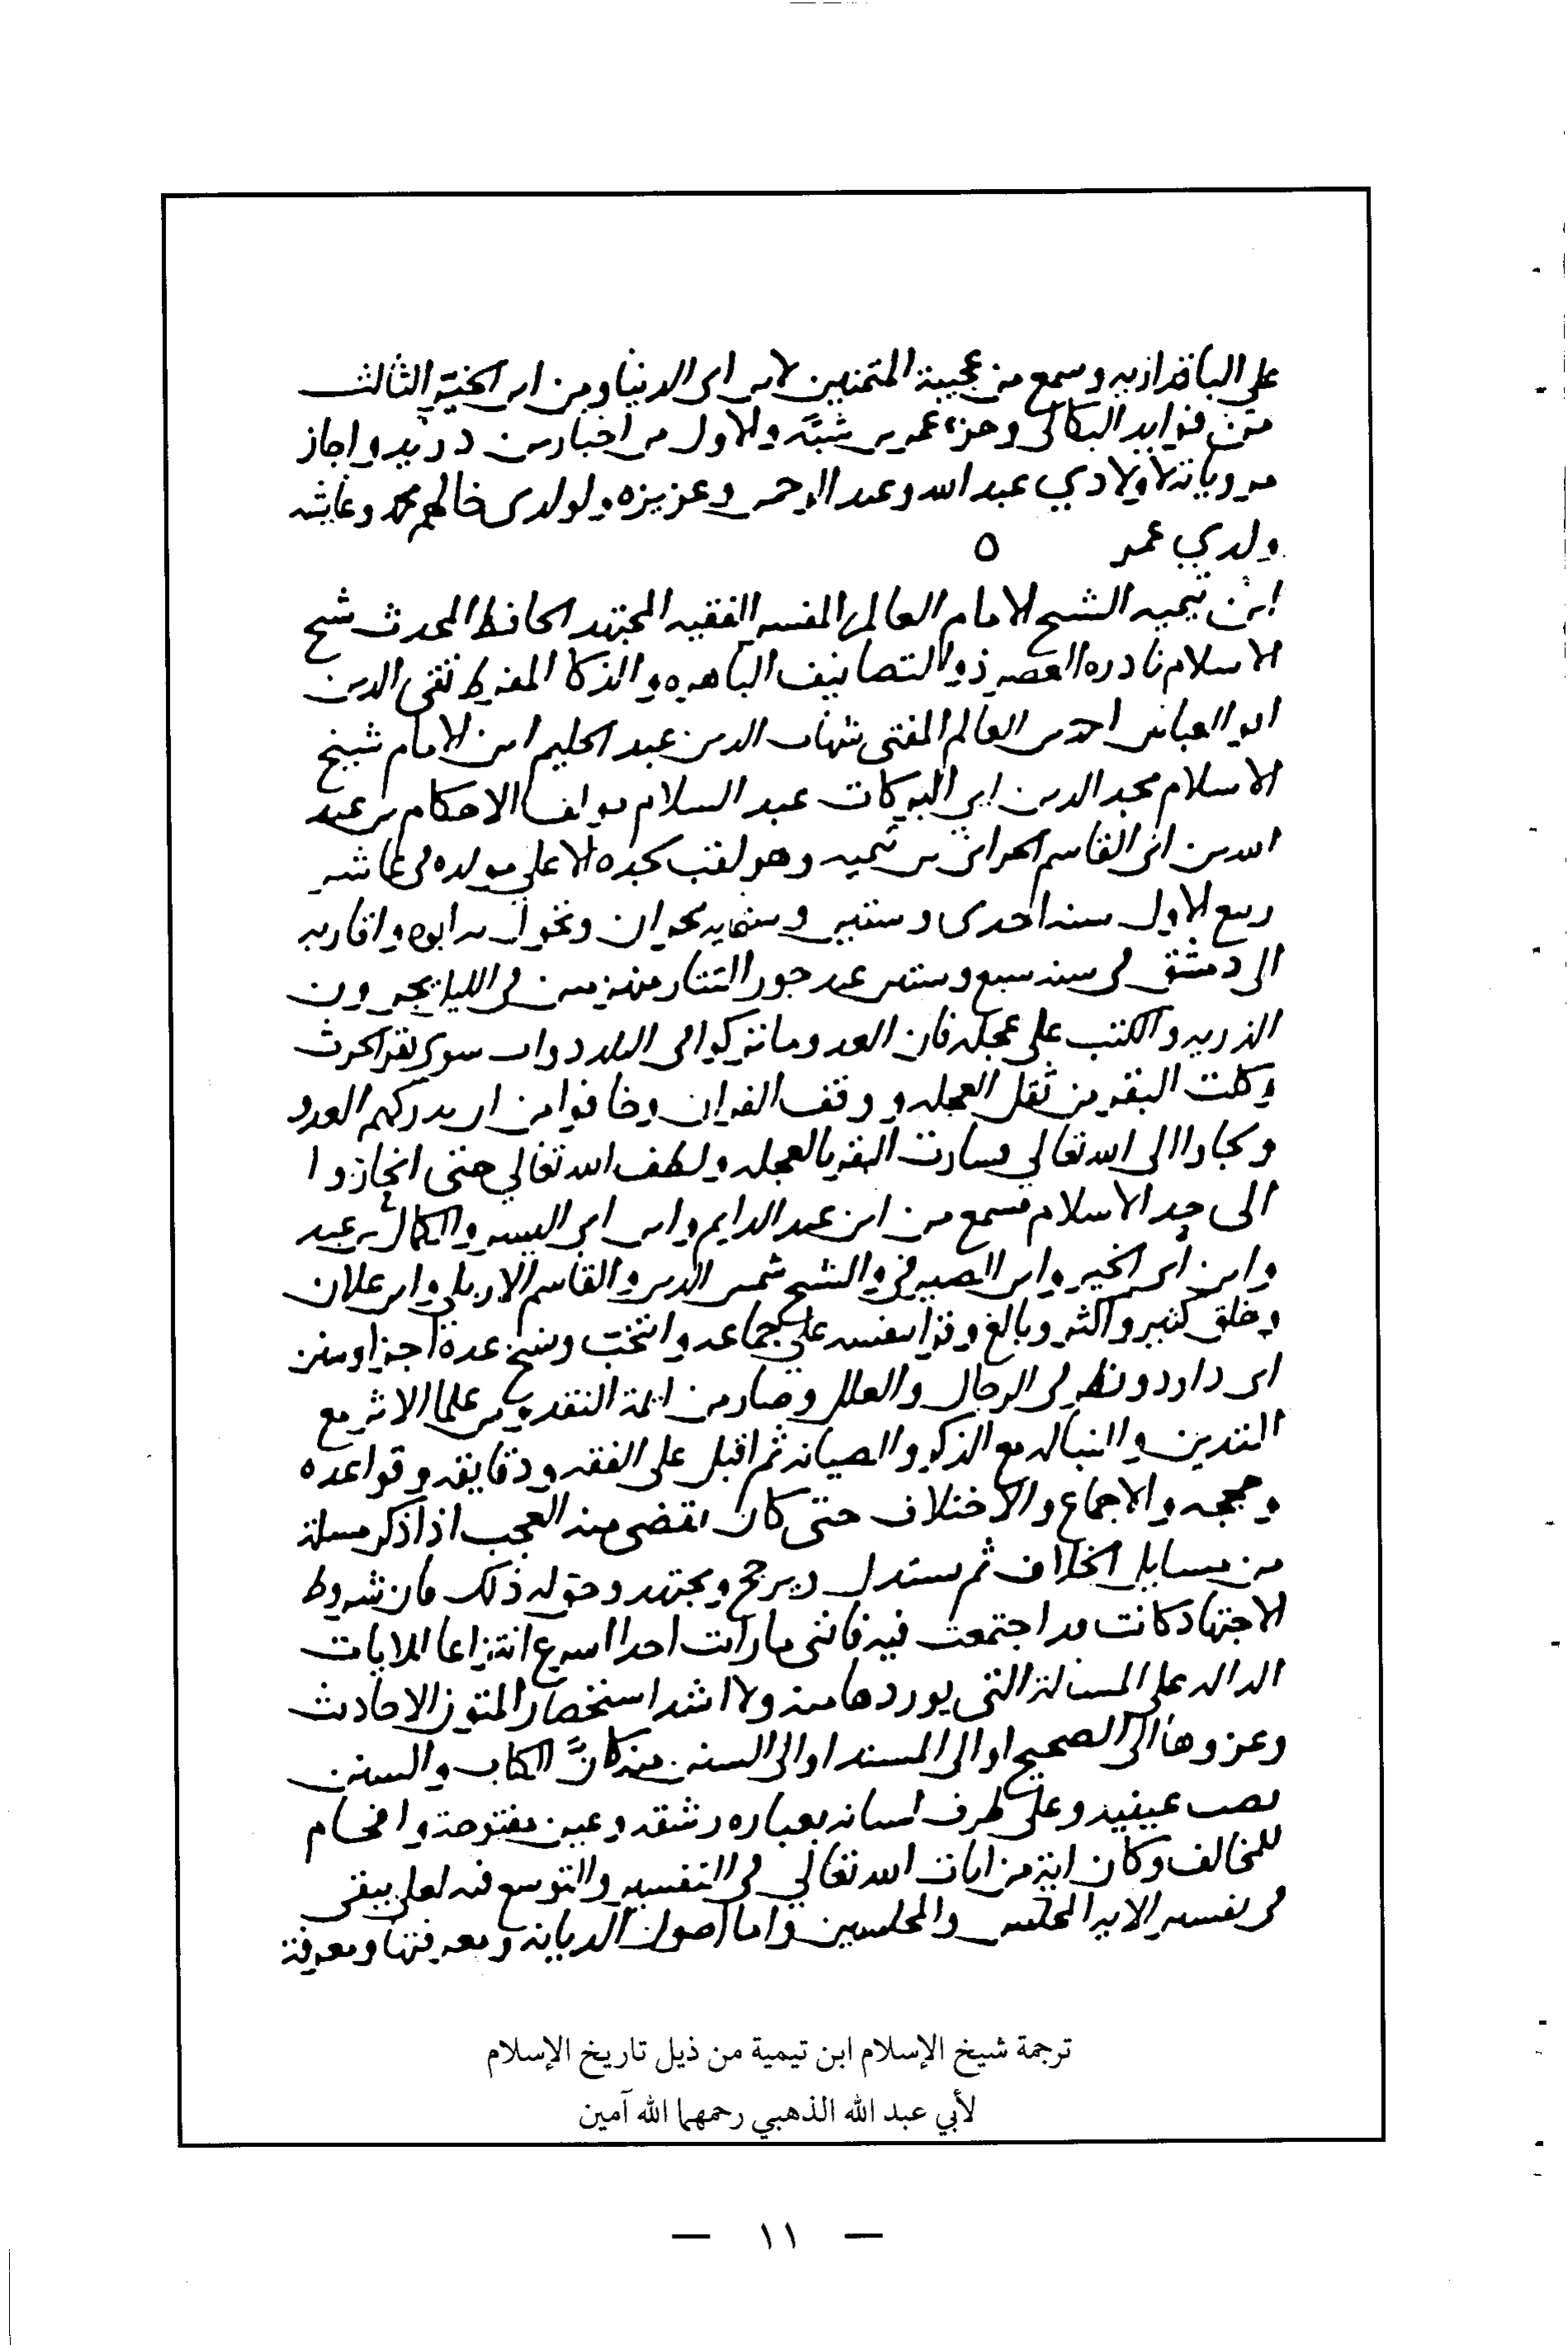 على الباقدازيه وسمع من عجيبة المتمنين لابن ابى الدنيا ومن ابن الخير الثالث
من فوايد البكالى وجزء عمر بن شبَّه والاول من اخبار بن دريد واجاز
مروياته لاولادي عبد الله وعبد الرحمن وعزيزه ولولدى خالهم محمد وعايشه
ولدي عمر ٥
ابن تيميه الشيخ الامام العالم المفسر الفقيه المجتهد الحافظ المحدث شيخ
الاسلام نادره العصر ذو التصانيف الباهره والذكا المفرط تقى الدين
ابو العباس احمد بن العالم المفتى شهاب الدين عبد الحليم ابن الامام شيخ
الاسلام مجد الدين ابي البركات عبد السلام مولف الاحكام بن عبد
الله بن ابى القاسم الحرانى بن تيميه وهو لقب لجده الاعلي مولده فى عاشر
ربيع الاول سنه احدى وستين وستمايه بحران وتحول به ابوه واقاربه
الى دمشق فى سنه سبع وستين عند جور التتار منهزمين فى الليل يجرون
الذريه والكتب على عجله فان العدو ما تركوا فى البلد دواب سوى بقر الحرث
وكلت البقر من ثقل العجله ووقف الفران وخافوا من ان يدركهم العدو
ولجاوا الى الله تعالي فسارت البقر بالعجله ولطف الله تعالي حتى انحازوا
الى حد الاسلام فسمع من ابن عبد الدايم وابن ابى اليسر والكمال بن عبد
وابن ابى الخير وابن الصيرفى والشيخ شمس الدين والقاسم الاربلى وابن علان
وخلق كثير واكثر وبالغ وقرا بنفسه على جماعه وانتخب ونسخ عدة اجزا وسنن
ابى داود ونظر فى الرجال والعلل وصار من ائمة النقد ومن علما الاثر مع
التدين والنباله مع الذكر والصيانه ثم اقبل على الفقه ودقايقه وقواعده
وحججه والاجماع والاختلاف حتى كان يقضى منه العجب اذا ذكر مسلة
من مسايل الخلاف ثم يستدل ويرجح ويجتهد وحق له ذلك فان شروط
الاجتهاد كانت قد اجتمعت فيه فاننى ما رايت احدا اسرع انتزاعا للايات
الداله على المسالة التى يوردها منه ولا اشد استحضارا لمتون الاحاديث
وعزوها الى الصحيح او الى المسند او الى السنن منه كانَّ الكتاب والسنن
نصب عينيه وعلى طرف لسانه بعباره رشقه وعين مفتوحة وافحام
للمخالف وكان اية من ايات الله تعالي فى التفسير والتوسع فيه لعله يبقى
فى تفسير الايه المجلس والمجلسين واما اصول الديانه ومعرفتها ومعرفة
ترجمة شيخ الإسلام ابن تيمية من ذيل تاريخ الإسلام
لأبي عبد الله الذهبي رحمهما الله آمين
— ١١ —